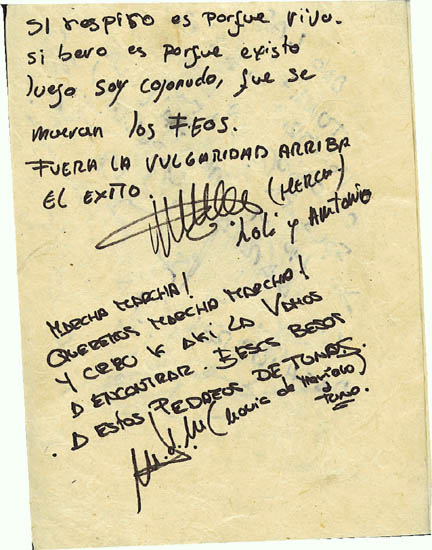 SI respiro es porque vivo.
si bero es porque existo
luego soy cojonudo, que se
mueran los FEOS.
FUERA LA VULGARIDAD ARRIBA
EL EXITO.
(MERCA)
Loli y Antonio
MARCHA MARCHA!
QUEREMOS MARCHA MARCHA!
Y CREO K AKI LA VAMOS
A ENCONTRAR. BESOS BESOS
D ESTOS PEDAZOS DE TUNOS.
(novia de
tuno.